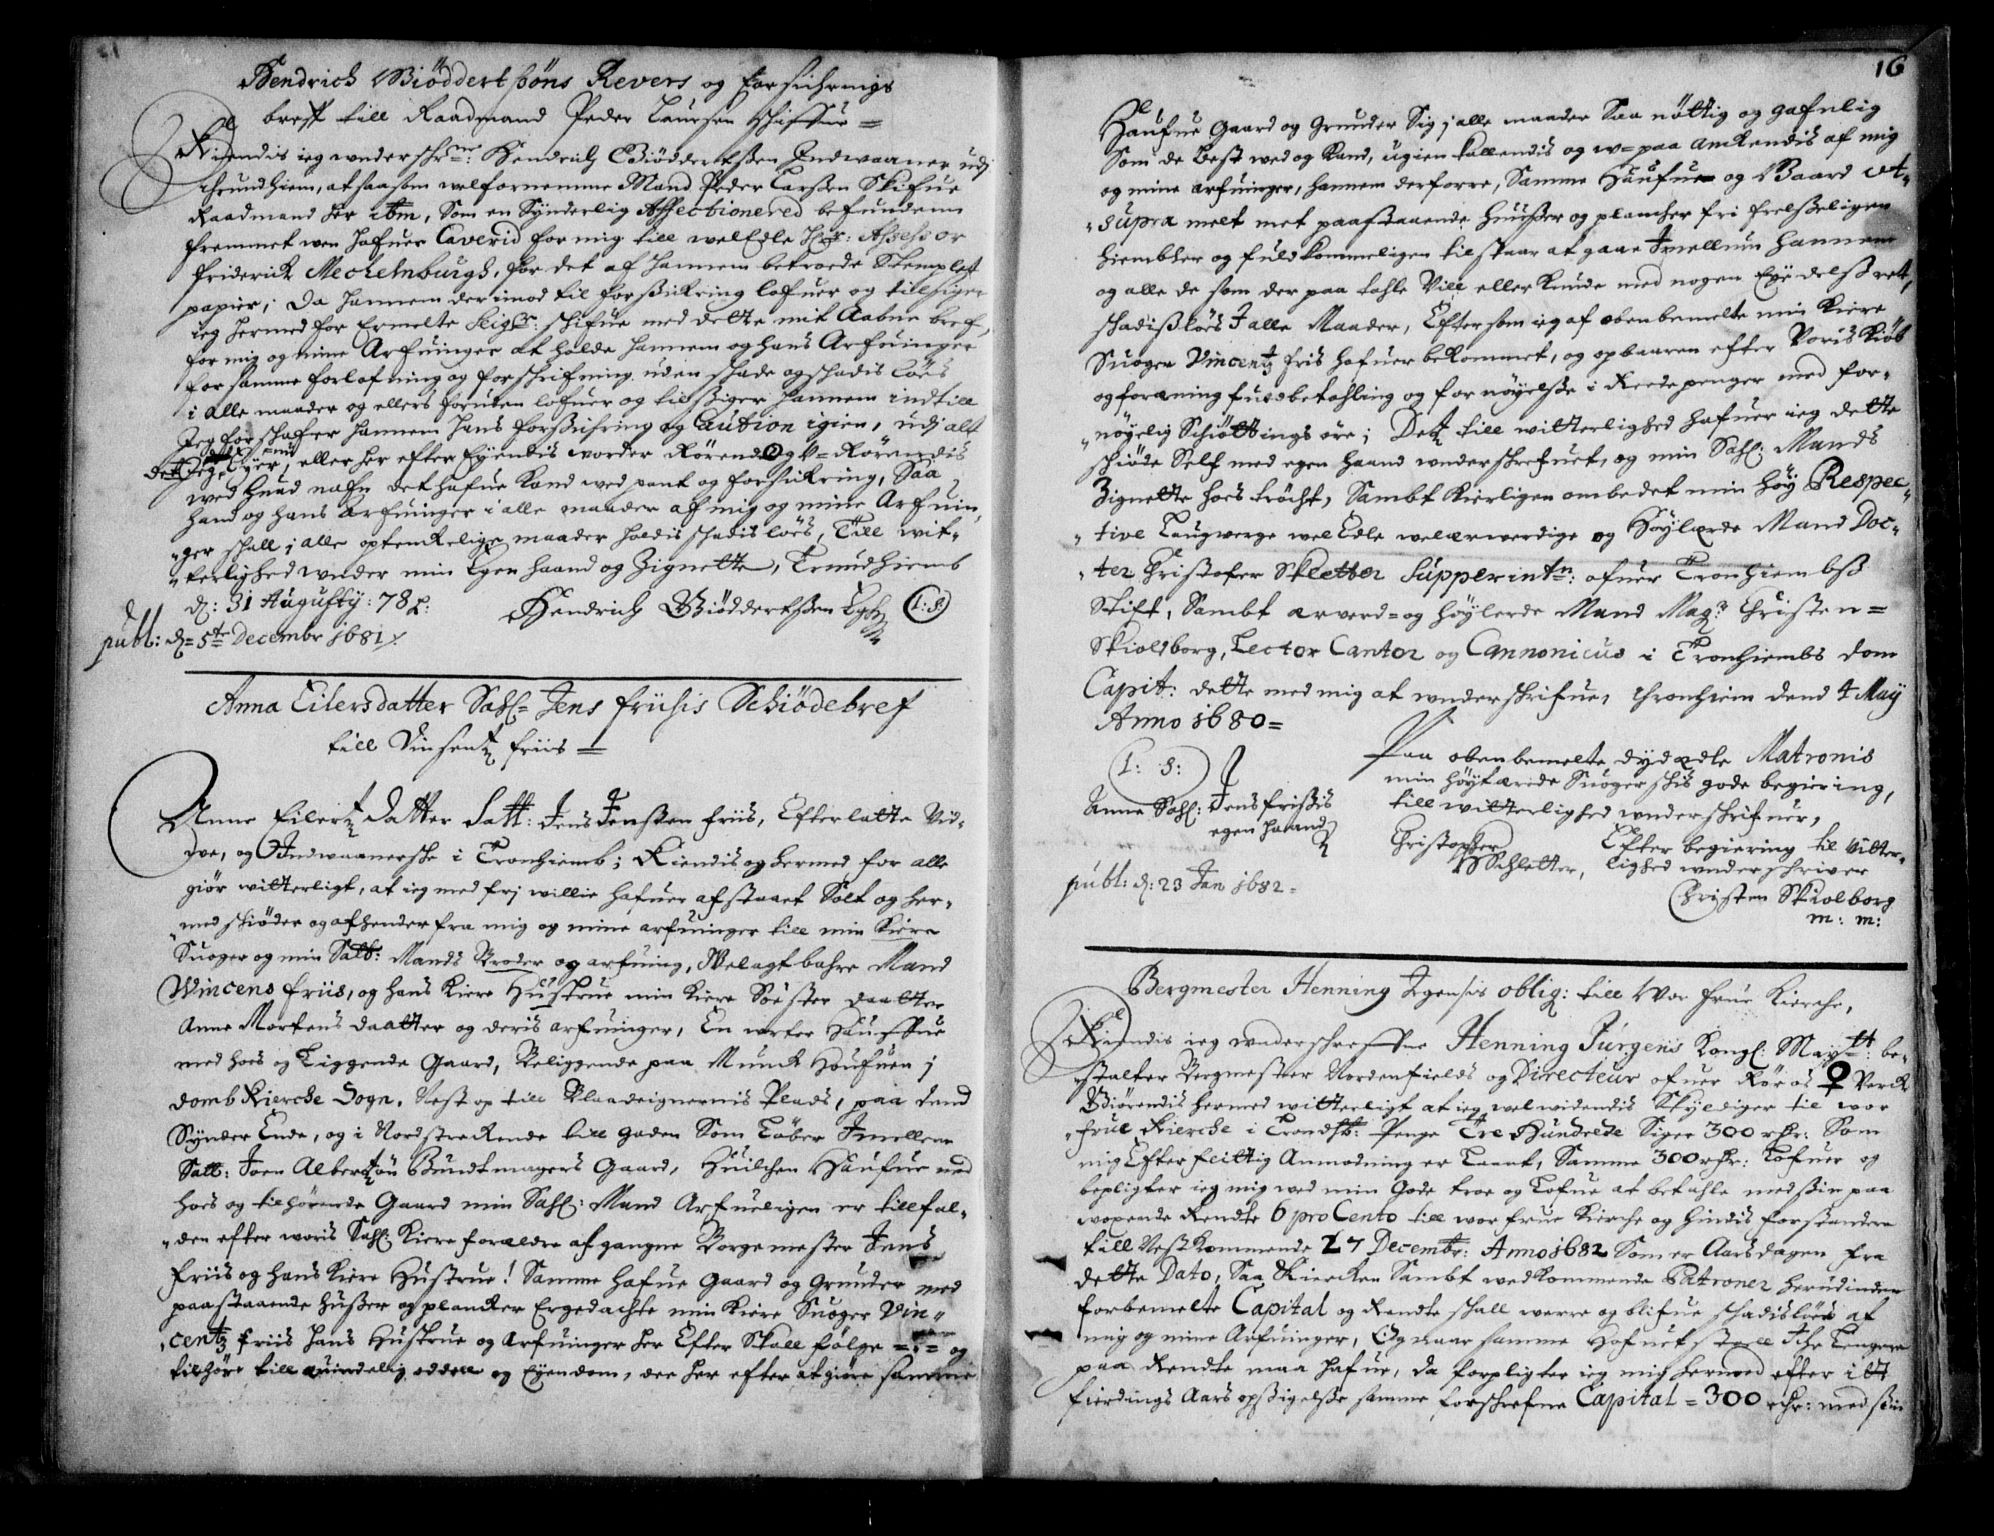 Hendrich Biöddertßöns Revers og forsichrings
breff till Raadmand Peder Laursen Schiffue =
Kiendis ieg underschr:ne: Hendrich Biöddertsen Indwaaner udj
Thrundhiem, at saasom welfornemme Mand Peder Larßen Skifue
Raadmand her ibm, Som en Synderlig Affectionered befunden
fremmet wen hafuer Caverid for mig till welEdle Hr: Assessor
Friderick Mechelnburgh, for det af hannem betroede Stemplet
papier; Da hannem derimod til forßickring lofuer og tilsiger
ieg hermed for Ermelte Seigr: Schifue med dette mit Aabne bref,
for mig og mine Arfuinger at holde hannem og hans Arfuinger
for samme forlofning og forschrifning uden schade og schadis löes
i alle maader og ellers foruden lofuer og tilßiger hannem indtill
Jeg forschafer hannem hans forßichring og Caution igien, udj alt
dett jeg nu Eyer, eller her efter Eyendis worder Rörend og U=Rörendis
wed huad nafn det hafue Kand wed pant og forsickring, Saa
hand og hans Arfuinger i alle maader af mig og mine Arfuin-
"ger schall i alle optenckelige maader holdis schadislöes, Till wit-
"terlighed under min Egen haand og Zignette, Trundhiemb
d: 31 Augusty: 78 Hendrich Biödderthßen Eghd (L:S)
publ: d= 5te Decembr 1681
Anna Eilersdatter Sahl= Jens friisis Schiödebref
till Vinsentz friis =
Anne Eilertz Datter Sall: Jens Jenßen friis, Efterlatte Vid-
due, og Indwaanersche i Tronhiemb; Kiendis og hermed for alle
giör witterligt, at ieg med frj willie hafuer afstaaet Solt og her-
"med schiöder og afhender fra mig og mine arfuinger till min Kiere
Suoger og min Sall: Mands Broder og arfuing, Welagtbahre Mand
Wincens friis, og hans Kiere Hustrue min Kiere Söster daatter
Anne Mortens daatter og deris arfuinger, En
med hoes og Liggende Gaard, Beliggende paa Munck Houfuen j
domb Kierche Sogn. Nest op till Plads, paa dend
Synder Ende, og i Nord streckende till gaden Som Löber Imellem
Sall: Joen Albertzön Bundtmagers Gaard, Huilchen Haufue med
hoes og tilhörende Gaard min Sahl: Mand Arfueligen er tillfal-
"den efter woris Sahl: Kiere forældre afgangne Borgemester Jens
Friis og hans Kiere Hustrue! Samme Hafue Gaard og Grunder med
paastaaende Hußer og plancker Ergedachte min Kiere Suoger Vin-
"centz Friis hans Hustrue og Arfuinger her Efter Skall fölge =:= og
tilhöre till euindelig oddell og Eyendom, der her efter at giöre samme
16
Haufue Gaard og Grunder Sig i alle maader Saa nöttig og gafnlig
Som de best wed og Kand, ugien Kallendis og u=paa anckendis af mig
og mine arfuinger, hannem derforre, Samme Haufue og Gaard ut-
"supra melt met paastaaende Huußer og plancher fri frelßeligen
hiembler og fuldkommeligen tilstaar at gaae Imellum hannem
og alle de som der paa tahle Vill eller Kunde med nogen Eyedelß rett,
schadißlöes I alle Maader, Eftersom ieg af obenbemelte min Kiere
Suoger Vincentz Friis hafuer bekommet, og opbaaren efter Voris Kiöb
og forening fuld betahling og fornöyelse i Reede penger med for-
"nöyelig Schiöttings öre; Detz till witterlighed hafuer ieg dette
schiöde Self med egen haand underschrefuet, og min Sahl: Mands
Zignette hoes tröcht, Sambt Kierligen ombedet min Höy Respec-
"tive Laugwerge welEdle welærwerdige og Höylærde Mand Doc-
"ter Christofer Sletter Supperintn: ofuer Tronhiembß
Stift, Sambt ærverd= og höylerde Mand Magr Christen =
Skioldborg, Lector Cantor og Cannonicus i Tronhiembs dom
Capit: dette med mig at underskrifue, Thronhiem dend 4 May
Anno 1680=
(L: S:)
Anne Sahl: Jens frißis
egen haand
Paa obenbemelte dydædle Matronis
min höytærede Suogerschis gode begiering,
till witterlighed underschrifuer,
Christopher
Schletter,
Efter begiering til vitter-
lighed underschriver
Christen Skiolborg
m: m:
publ: d: 23 Jan 1682=
Bergmester Henning Irgensis oblig: till Wor frue Kierche,
Kiendis ieg underschreffne Henning Jürgens Kongl: Maytt: be-
"stalter Bergmester Nordenfields og Directeur ofuer Röraas ♀ Verck
Giörendis hermed witterligt at ieg welwidendis Skyldiger til wor
"frue Kierche i Trondh: Penge Tre Hundrede Siger 300 rdr: Som
mig Efter flittig Anmodning er Laant, Samme 300 rdr: Lofuer og
bepligter ieg mig wed min Gode troe og Lofue at betahle med sin paa
woxende Rendte 6 pro Cento till wor frue Kierche og hindis forstandere
till Nestkommende 27 Decembr: Anno 1682 Som er Aarsdagen fra
dette Dato, Saa Kiercken Sambt wedkommende Patroner herudinden
forbemelte Capital og Rendte schall werre og blifue schadislöes af
mig og mine Arfuinger, Og naar samme Hofuetstoell Iche Lengere
paa Rendte maa hafue, da forpligter ieg mig hermed efter itt
fierdings Aars opßigelße samme forschrefne Capital = 300 rdr: med sin